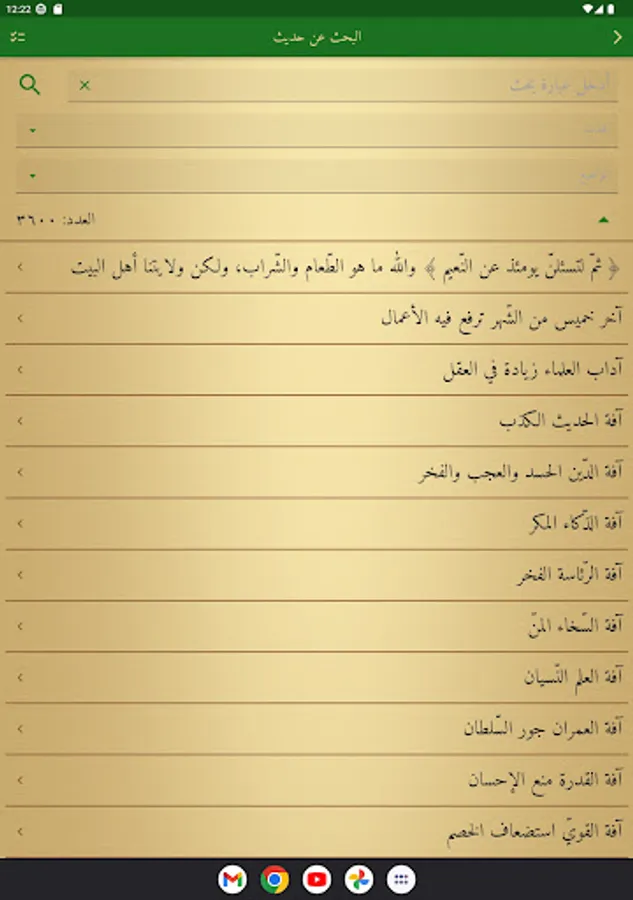 12:22
البحث عن حديث
أدخل عبارة بحث
العدد: ٣٦٠٠
﴿ ثمّ لتسئلنّ يومئذ عن النّعيم ﴾ والله ما هو الطّعام والشّراب، ولكن ولايتنا أهل البيت
آخر خميس من الشّهر ترفع فيه الأعمال
آداب العلماء زيادة في العقل
آفة الحديث الكذب
آفة الدّين الحسد والعجب والفخر
آفة الذّكاء المكر
آفة الرّئاسة الفخر
آفة السّخاء المنّ
آفة العلم النّسيان
آفة العمران جور السّلطان
آفة القدرة منع الإحسان
آفة القويّ استضعاف الخصم